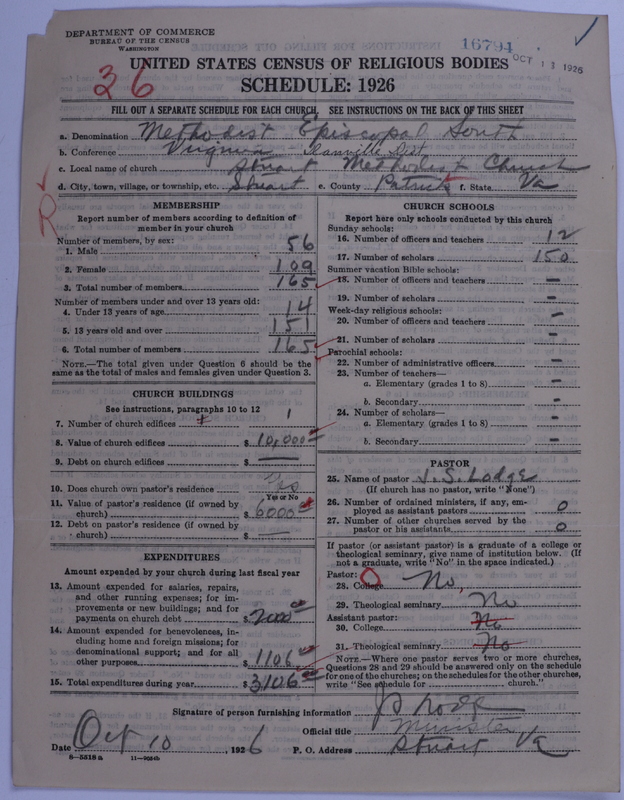 DEPARTMENT OF COMMERCE
BUREAU OF THE CENSUS
WASHINGTON
16794
OCT 13 1926
UNITED STATES CENSUS OF RELIGIOUS BODIES
36
SCHEDULE: 1926
FILL OUT A SEPARATE SCHEDULE FOR EACH CHURCH. SEE INSTRUCTIONS ON THE BACK OF THIS SHEET
a. Denomination Methodist Episcopal South
b. Conference Virginia - Danville Dist.
c. Local name of church Stuart Methodist Church
d. City, town, village, or township, etc. Stuart e. County Patrick f. State Va
R
MEMBERSHIP
Report number of members according to definition of member in your church
Number of members, by sex:
1. Male 56
2. Female 109
3. Total number of members 165
Number of members under and over 13 years old:
4. Under 13 years of age 14
5. 13 years old and over 151
6. Total number of members 165
NOTE.—The total given under Question 6 should be the
same as the total of males and females given under Question 3.
CHURCH BUILDINGS
See instructions, paragraphs 10 to 12
7. Number of church edifices 1
8. Value of church edifices $ 10,000
9. Debt on church edifices $ —
10. Does church own pastor's residence Yes
Yes or No
11. Value of pastor's residence (if owned by
church) $ 6000
12. Debt on pastor's residence (if owned by
church) $ —
EXPENDITURES
Amount expended by your church during last fiscal year
13. Amount expended for salaries, repairs,
and other running expenses; for im-
provements or new buildings; and for
payments on church debt $ 2000
14. Amount expended for benevolences, in-
cluding home and foreign missions; for
denominational support; and for all
other purposes 1106
15. Total expenditures during year $ 3106
CHURCH SCHOOLS
Report here only schools conducted by this church
Sunday schools:
16. Number of officers and teachers 12
17. Number of scholars 150
Summer vacation Bible schools:
18. Number of officers and teachers —
19. Number of scholars —
Week-day religious schools:
20. Number of officers and teachers —
21. Number of scholars —
Parochial schools:
22. Number of administrative officers —
23. Number of teachers—
a. Elementary (grades 1 to 8) —
b. Secondary —
24. Number of scholars—
a. Elementary (grades 1 to 8) —
b. Secondary —
PASTOR
25. Name of pastor J. S. Lodge
(If church has no pastor, write "None")
26. Number of ordained ministers, if any, em-
ployed as assistant pastors 0
27. Number of other churches served by the
pastor or his assistants 0
If pastor (or assistant pastor) is a graduate of a college or
theological seminary, give name of institution below. (If
not a graduate, write "No" in the space indicated.)
Pastor:
28. College No
29. Theological seminary No
Assistant pastor:
30. College No
31. Theological seminary No
NOTE.—Where one pastor serves two or more churches,
Questions 28 and 29 should be answered only on the schedule
for one of the churches; on the schedules for the other churches,
write "See schedule for church."
Signature of person furnishing information
Official title Minister
Date Oct 10, 1926 P. O. Address Stuart Va
8—5518 a